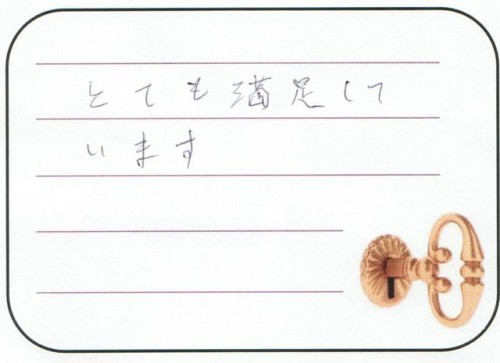 とても満足して
います